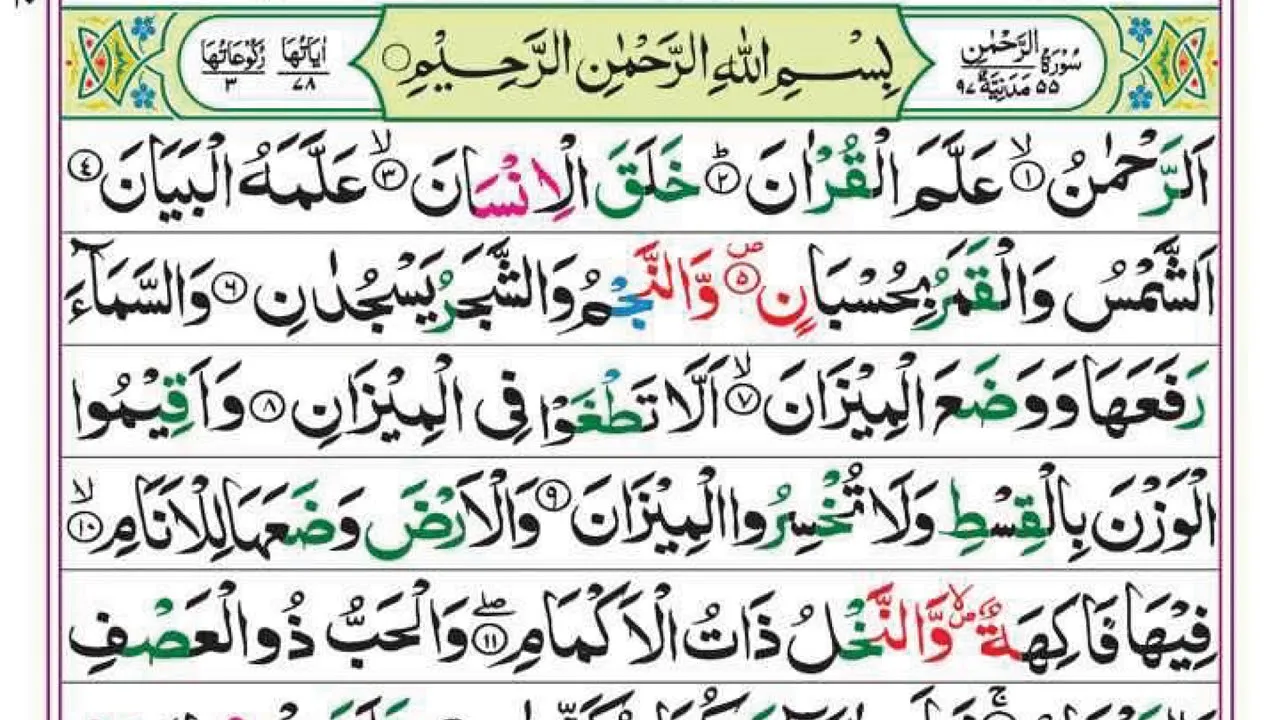 سُوْرَةُ الرَّحْمٰنِ
٥٥ مَدَنِيَّةٌ ٩٧
بِسْمِ اللّٰهِ الرَّحْمٰنِ الرَّحِيْمِ
اٰيَاتُهَا ٧٨
رُكُوْعَاتُهَا ٣
اَلرَّحْمٰنُ ۙ﴿١﴾ عَلَّمَ الْقُرْاٰنَ ؕ﴿٢﴾ خَلَقَ الْاِنْسَانَ ۙ﴿٣﴾ عَلَّمَهُ الْبَيَانَ ﴿٤﴾
اَلشَّمْسُ وَالْقَمَرُ بِحُسْبَانٍ ۪﴿٥﴾ وَّالنَّجْمُ وَالشَّجَرُ يَسْجُدٰنِ ﴿٦﴾ وَالسَّمَآءَ
رَفَعَهَا وَوَضَعَ الْمِيْزَانَ ۙ﴿٧﴾ اَلَّا تَطْغَوْا فِى الْمِيْزَانِ ﴿٨﴾ وَاَقِيْمُوا
الْوَزْنَ بِالْقِسْطِ وَلَا تُخْسِرُوا الْمِيْزَانَ ﴿٩﴾ وَالْاَرْضَ وَضَعَهَا لِلْاَنَامِ ۙ﴿١٠﴾
فِيْهَا فَاكِهَةٌ ۪ۙ وَّالنَّخْلُ ذَاتُ الْاَكْمَامِ ۖ﴿١١﴾ وَالْحَبُّ ذُو الْعَصْفِ